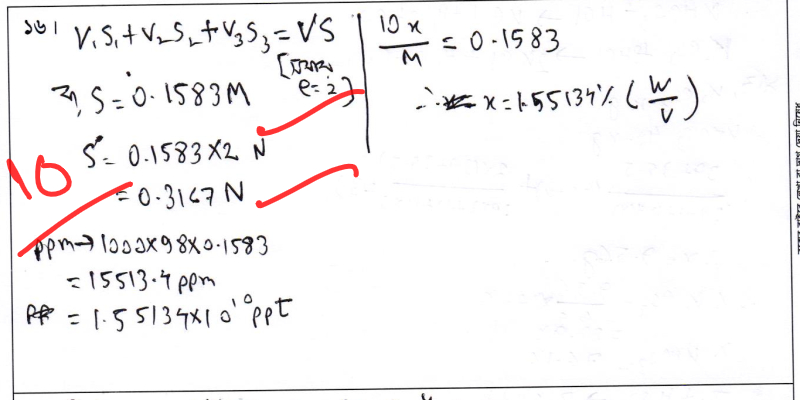 ১৬।
V₁S₁+V₂S₂+V₃S₃=VS
বা, S=0.1583M
[যেখানে e=2]
S=0.1583×2 N
=0.3167N
10
ppm→1000×98×0.1583
=15513.4ppm
=1.55134×10¹⁰ppt
10x/M = 0.1583
∴ x=1.55134% (W/V)